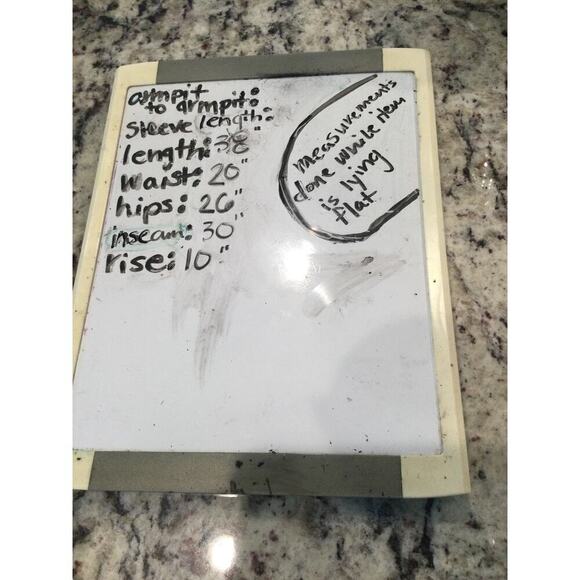 armpit
to armpit:
sleeve length:
length: 38"
waist: 20"
hips: 26"
inseam: 30"
rise: 10"
measurements
done while item
is lying
flat